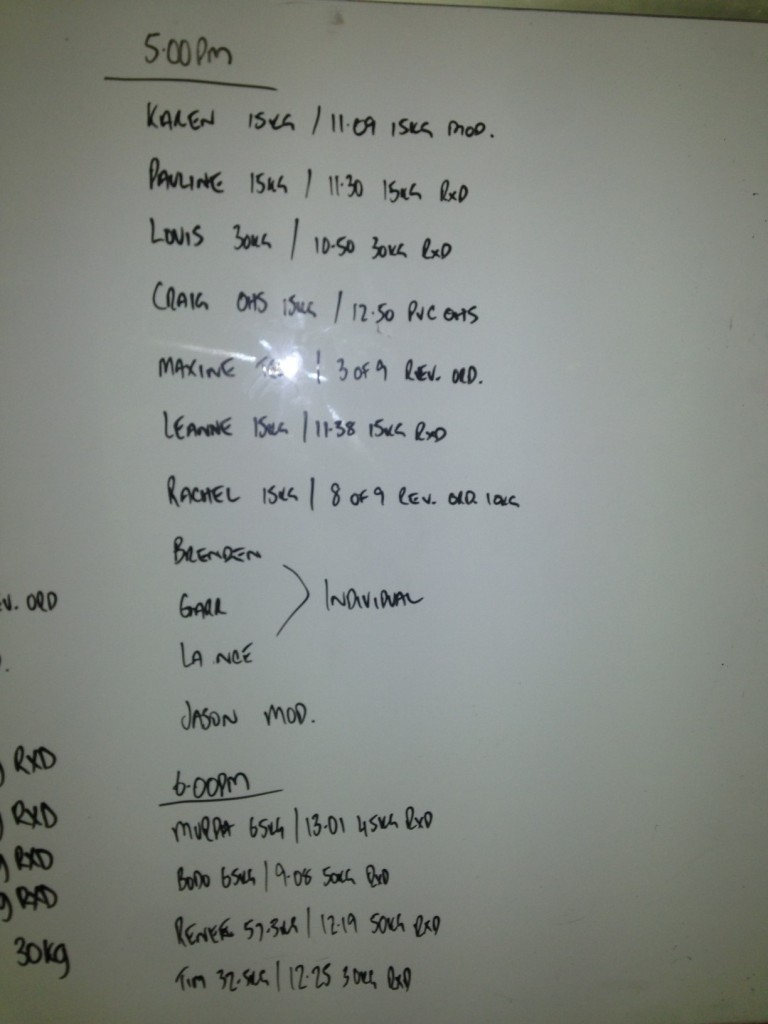 5.00pm
KAREN 15KG / 11.09 15KG MOD.
PAULINE 15KG / 11.30 15KG RxD
LOUIS 30KG / 10.50 30KG RxD
CRAIG OHS 15KG / 12.50 PVC OHS
MAXINE / 3 OF 9 REV. ORD.
LEANNE 15KG / 11.38 15KG RxD
RACHEL 15KG / 8 OF 9 REV. ORD. 10KG
BRENDEN
GARR
LANCE
INDIVIDUAL
JASON MOD.
6.00PM
65KG / 13.01 45KG RxD
BODO 65KG / 9.08 50KG RxD
RENEE 57.5KG / 12.19 50KG RxD
TIM 32.5KG / 12.25 30KG RxD
V. ORD
RXD
RXD
g RXD
g RXD
30kg